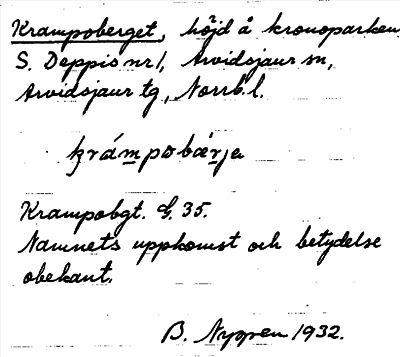 Krampoberget, höjd å kronoparken
S. Deppis nr 1, Arvidsjaur sn,
Arvidsjaur tg, Norrb. l.
krámpobærja
Krampobgt. G. 35.
Namnets uppkomst och betydelse
obekant.
B. Nygren 1932.